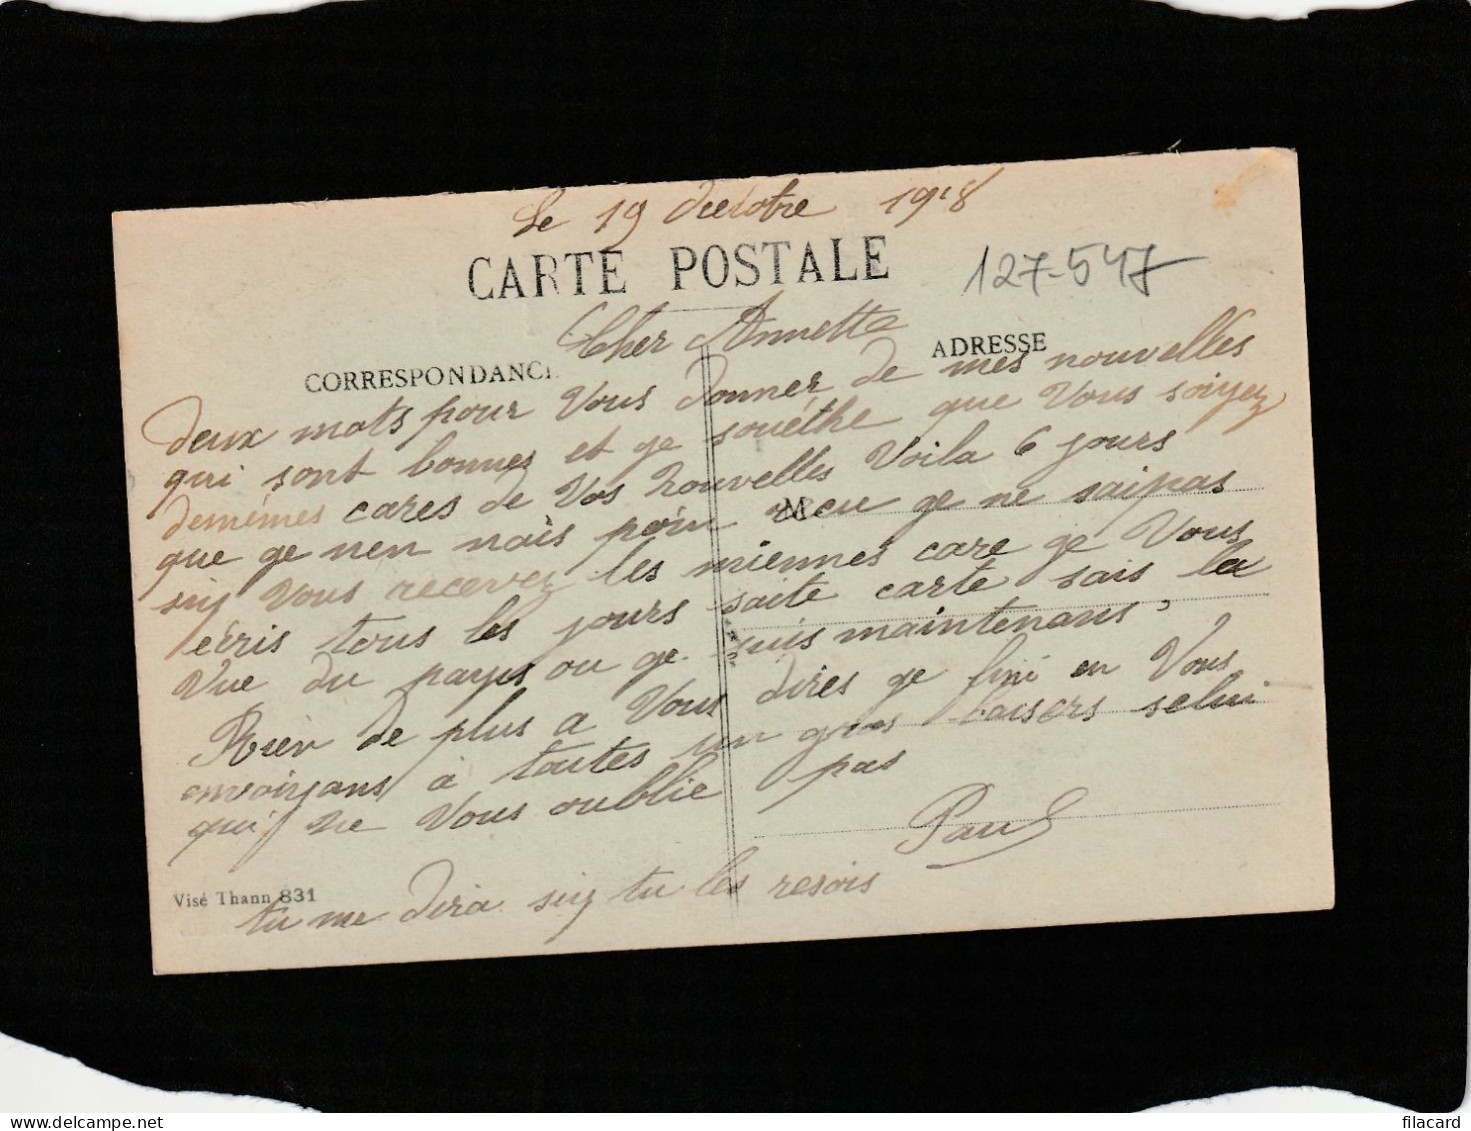 Le 19 Octobre 1918
CARTE POSTALE
127-547
Cher Annette
CORRESPONDANCE
ADRESSE
deux mots pour Vous donner de mes nouvelles
qui sont bonnes et ge souéthe que Vous soiyez
demémes cares de Vos nouvelles Voila 6 jours
que ge nen nais poin recu ge ne saipas
M
siy Vous recevez les miennes care ge Vous
ecris tous les jours saite carte sais la
Vue du pays ou ge suis maintenans,
Rien de plus a Vous dires ge fini en Vous
envoiyans à toutes un gros baisers selui
qui ne Vous oublie pas
Paul
Visé Thann 831
tu me dira siy tu les resois
filacard